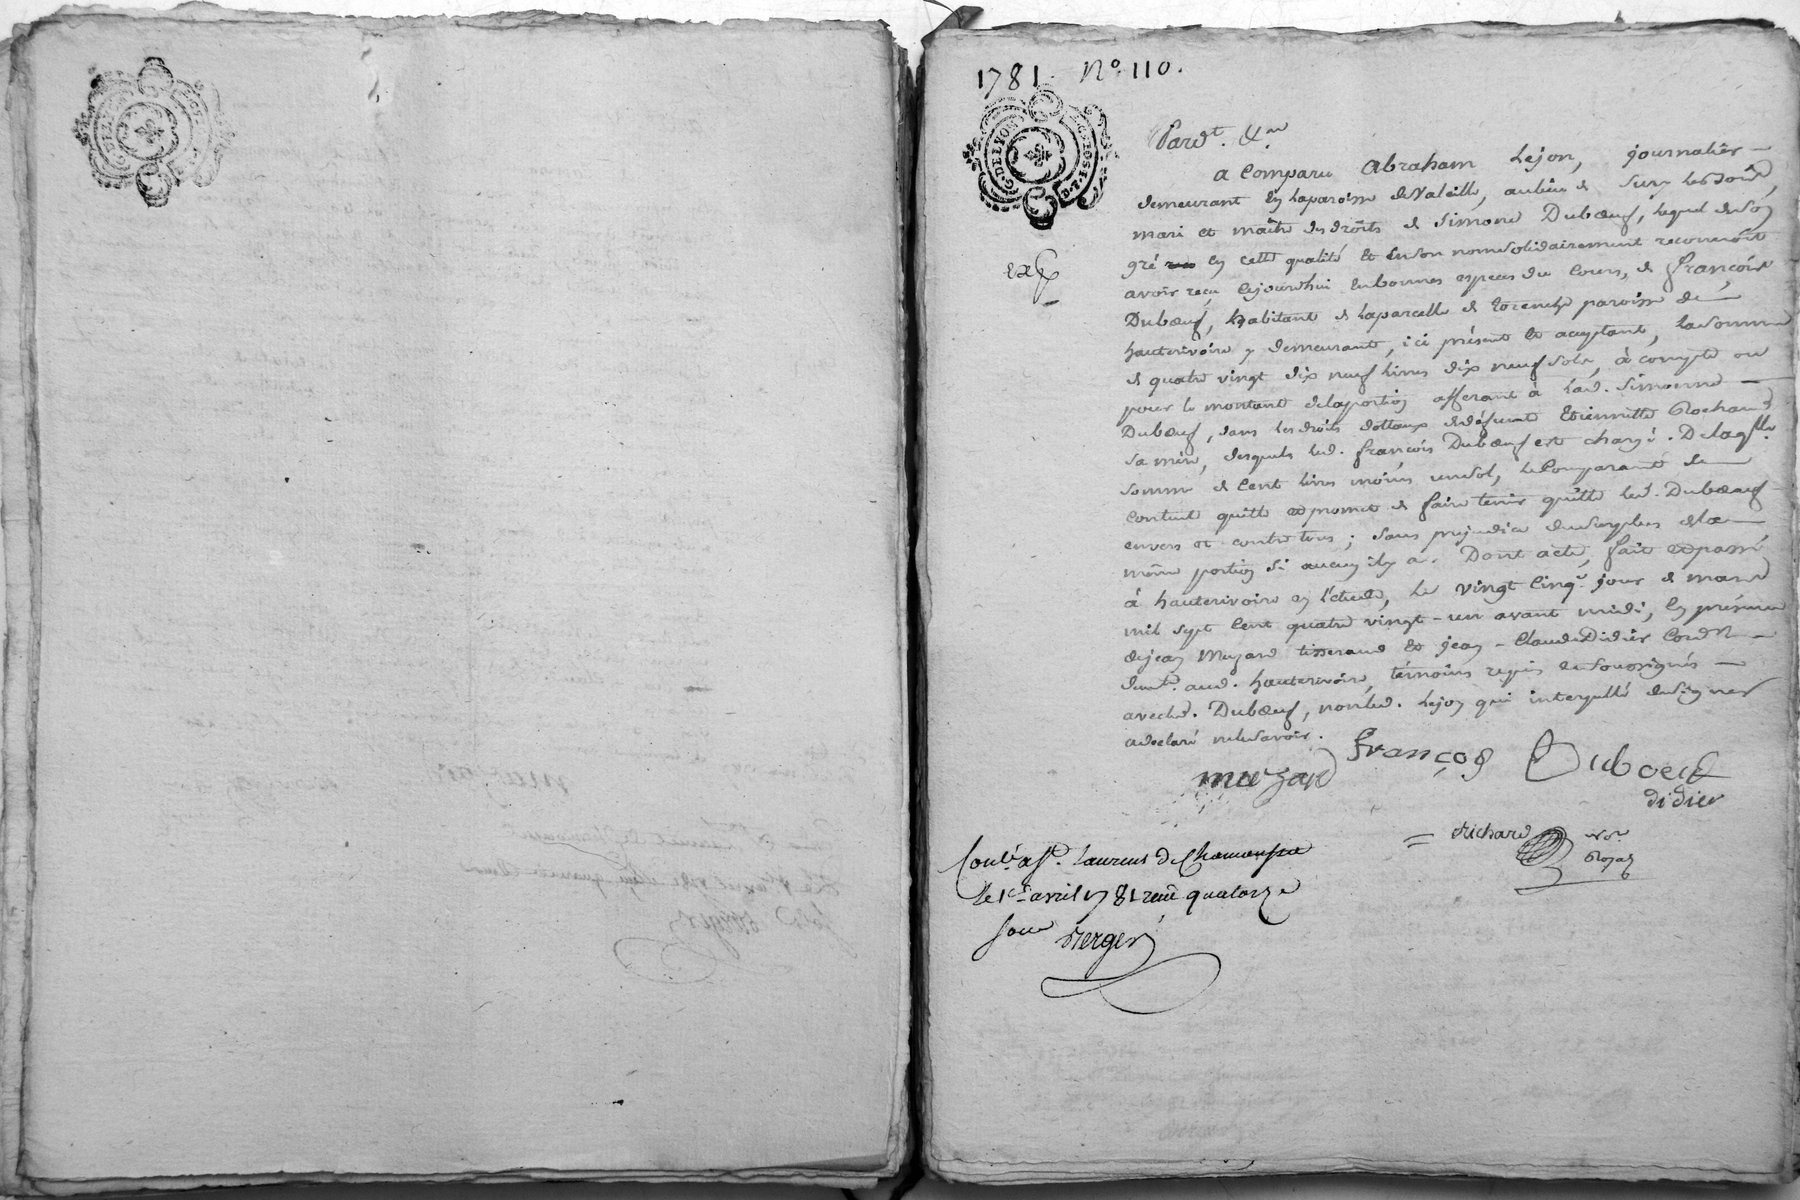 1781. N.º 110.
G. DE LYON
Pard.t &.ra
a Comparu Abraham Lejon, journalier
demeurant En la paroisse de Valeille, au lieu de
mari et maître des droits de Simone Dubœuf, lequel de son
gré en cette qualité et en son nom solidairement reconnoît
avoir reçu cejourdhui en bonnes espèces du Cours, de françois
Dubœuf, habitant de la parcelle de paroisse de
hauterivoire y demeurant, ici présent et acceptant, la somme
de quatre vingt dix neuf livres dix neuf sols, à compte ou
pour le montant de la portion afferant à lad. Simonne
Dubœuf, dans les droits de défunte Etiennette
sa mère, desquels led. françois Dubœuf est chargé. De laq.lle
somme de Cent livres moins un sol, le Comparant se
Contente quitte et promet de faire tenir quitte led. Dubœuf
envers et contre tous ; sans préjudice du surplus de la
même portion si aucun il y a. Dont acte, fait et passé
à hauterivoire en l'étude, le vingt Cinq.e jour de mars
mil sept Cent quatre vingt-un avant midi, En présence
de jean Muzard tisserand et jean-Claude Didier Cord.r
dem.t aud. hauterivoire, témoins requis et soussignés
avec led. Dubœuf, non led. Lejon qui interpellé de signer
a declaré ne le savoir.
françois Duboeuf
muzard
didier
Richard
Not.re
Royal
Conlé. à St. Laurens de Chamousset
le 1er avril 1781 reçu quatorze
sous Berger